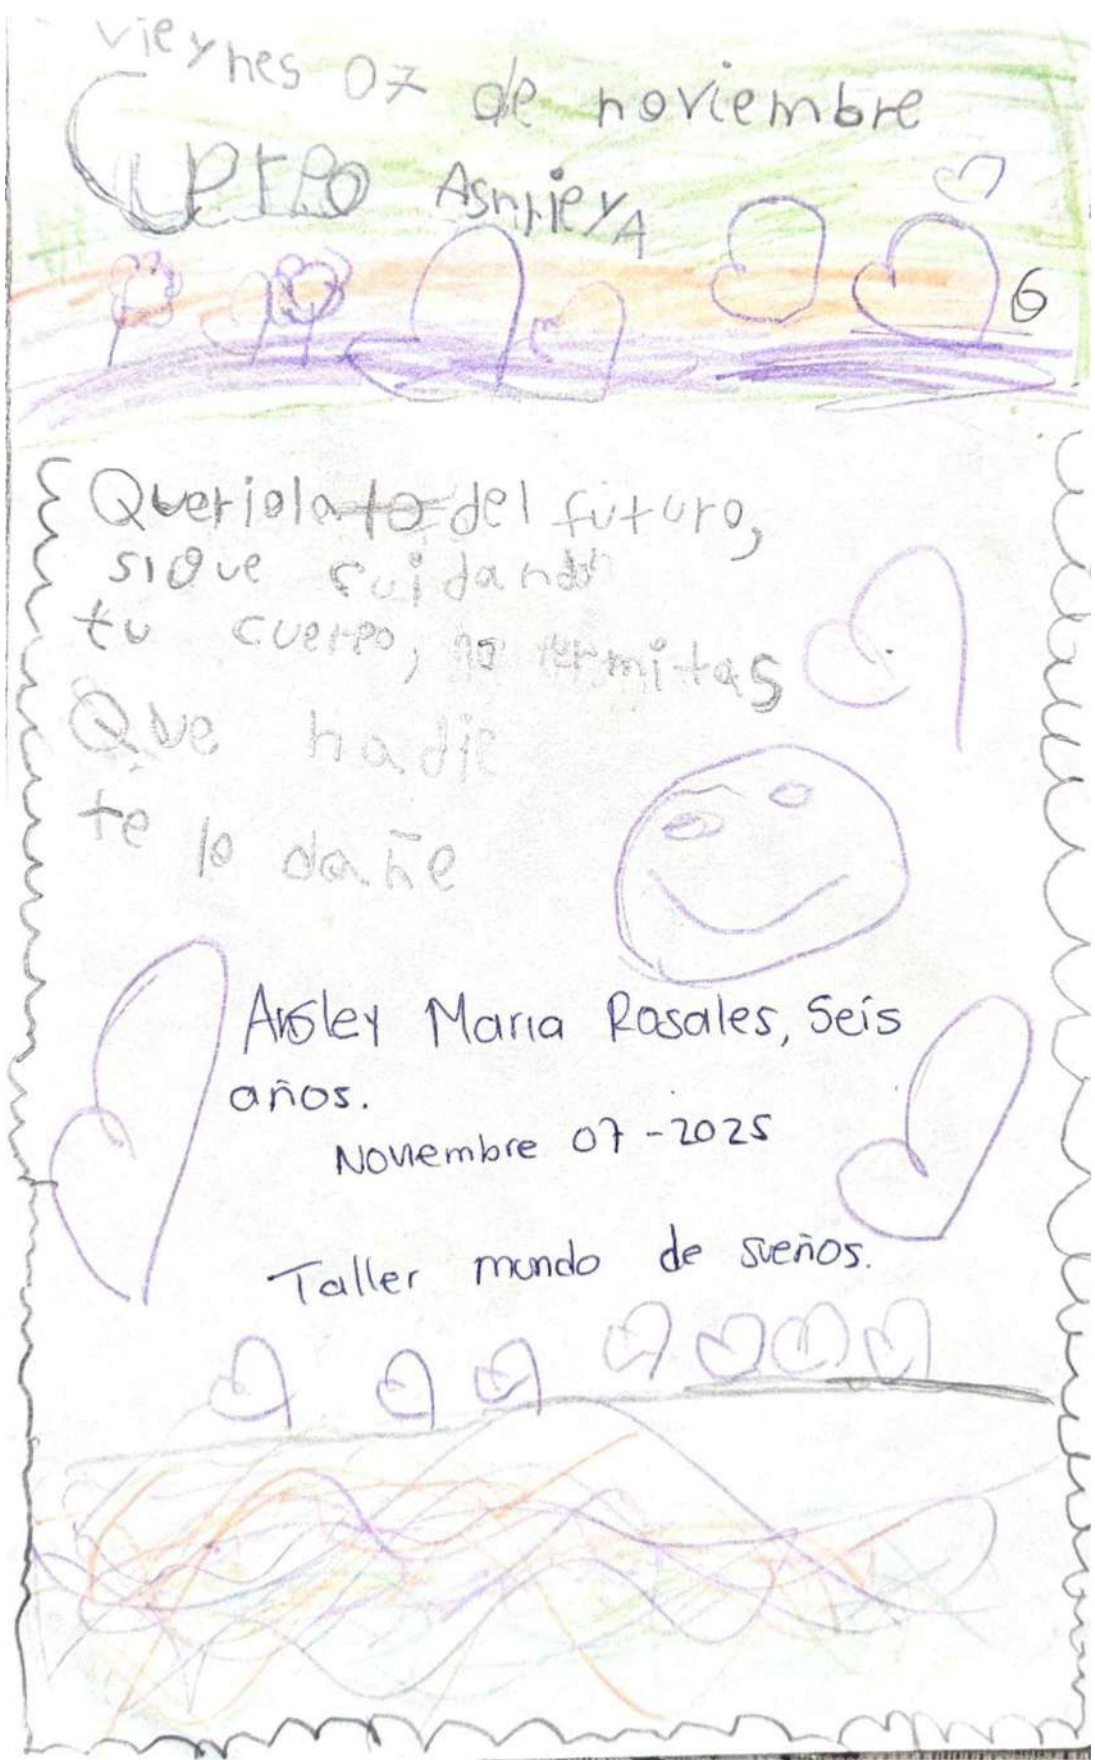 vieynes 07 de noviembre
6
Queriola to del futuro,
sigue cuidando
tu cuerpo, no permitas
Que nadie
te lo dañe
Maria Rosales, Seis
años.
Noviembre 07-2025
Taller mundo de sueños.